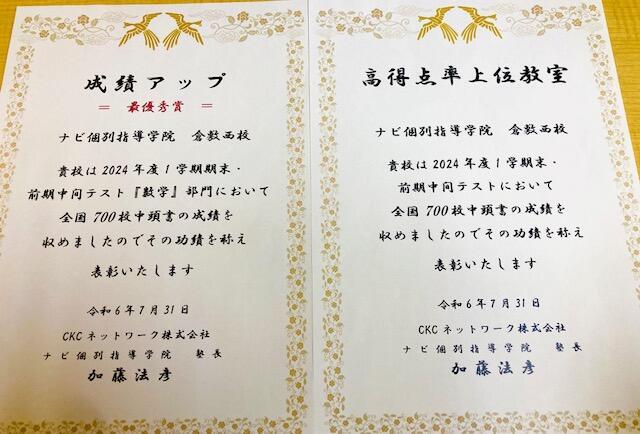 成績アップ
＝ 最優秀賞 ＝
ナビ個別指導学院 倉敷西校
貴校は2024年度1学期期末・
前期中間テスト『数学』部門において
全国700校中頭書の成績を
収めましたのでその功績を称え
表彰いたします
令和6年7月31日
CKCネットワーク株式会社
ナビ個別指導学院 塾長
加藤法彦
高得点率上位教室
ナビ個別指導学院 倉敷西校
貴校は2024年度1学期期末・
前期中間テストにおいて
全国700校中頭書の成績を
収めましたのでその功績を称え
表彰いたします
令和6年7月31日
CKCネットワーク株式会社
ナビ個別指導学院 塾長
加藤法彦